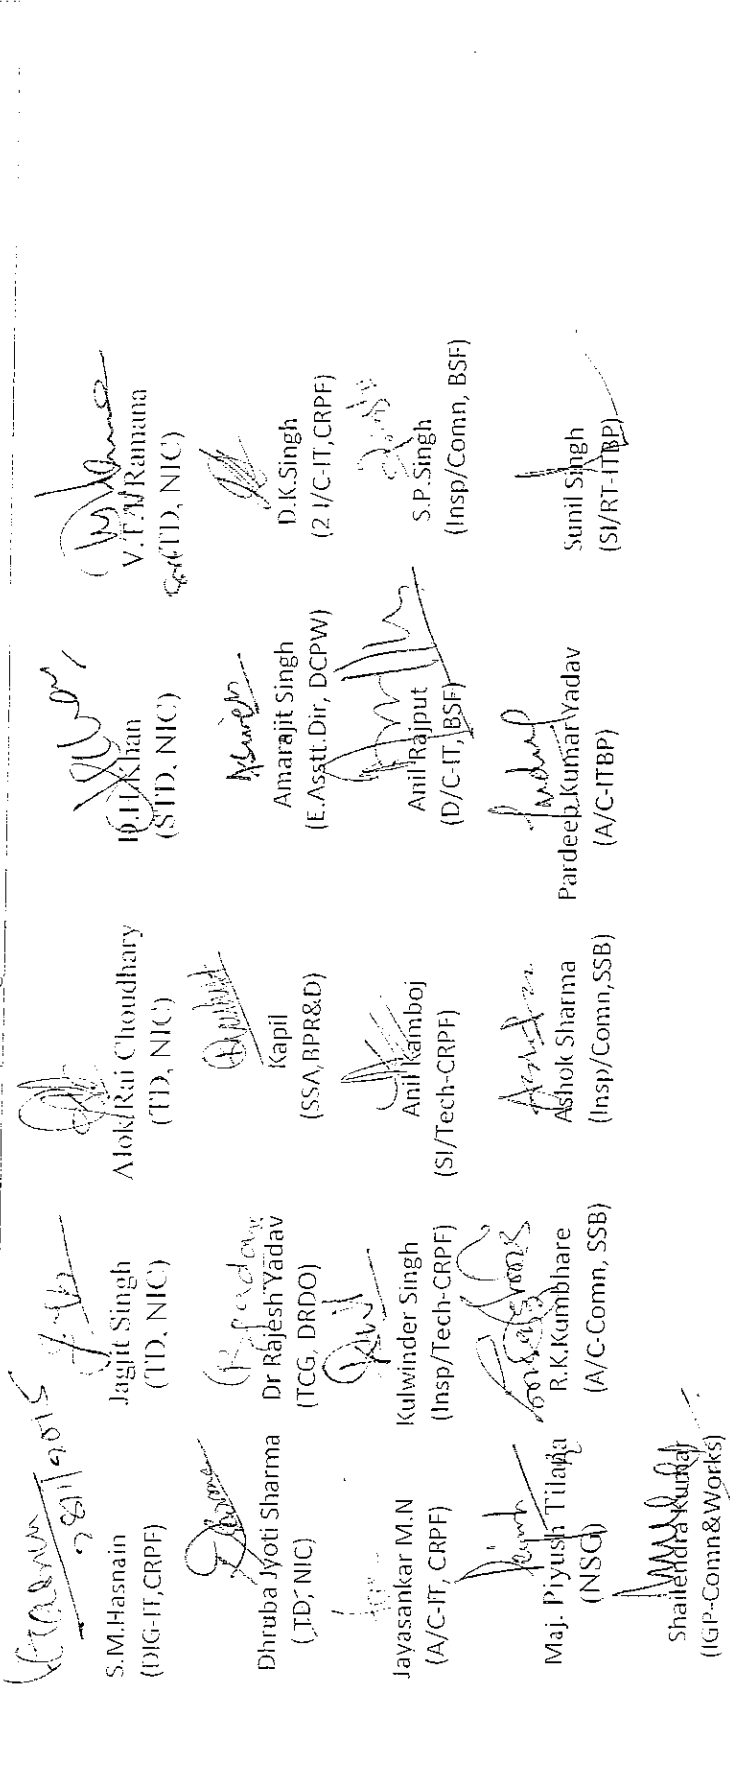 28/1/2015
S.M.Hasnain
(DIG-IT,CRPF)
Jagjit Singh
(TD, NIC)
Alok Rai Choudhary
(TD, NIC)
Khan
(STD, NIC)
Ramana
(TD, NIC)
Dhruba Jyoti Sharma
(TD, NIC)
Dr Rajesh Yadav
(TCG, DRDO)
Kapil
(SSA,BPR&D)
Amarajit Singh
(E.Asstt.Dir, DCPW)
D.K.Singh
(2 I/C-IT,CRPF)
Jayasankar M.N
(A/C-IT, CRPF)
Kulwinder Singh
(Insp/Tech-CRPF)
Anil Kamboj
(SI/Tech-CRPF)
Anil Rajput
(D/C-IT, BSF)
S.P.Singh
(Insp/Comn, BSF)
Maj. Piyush Tilara
(NSG)
R.K.Kumbhare
(A/C-Comn, SSB)
Ashok Sharma
(Insp/Comn,SSB)
Pardeep Kumar Yadav
(A/C-ITBP)
Sunil Singh
(SI/RT-ITBP)
Shailendra Kumar
(IGP-Comn&Works)